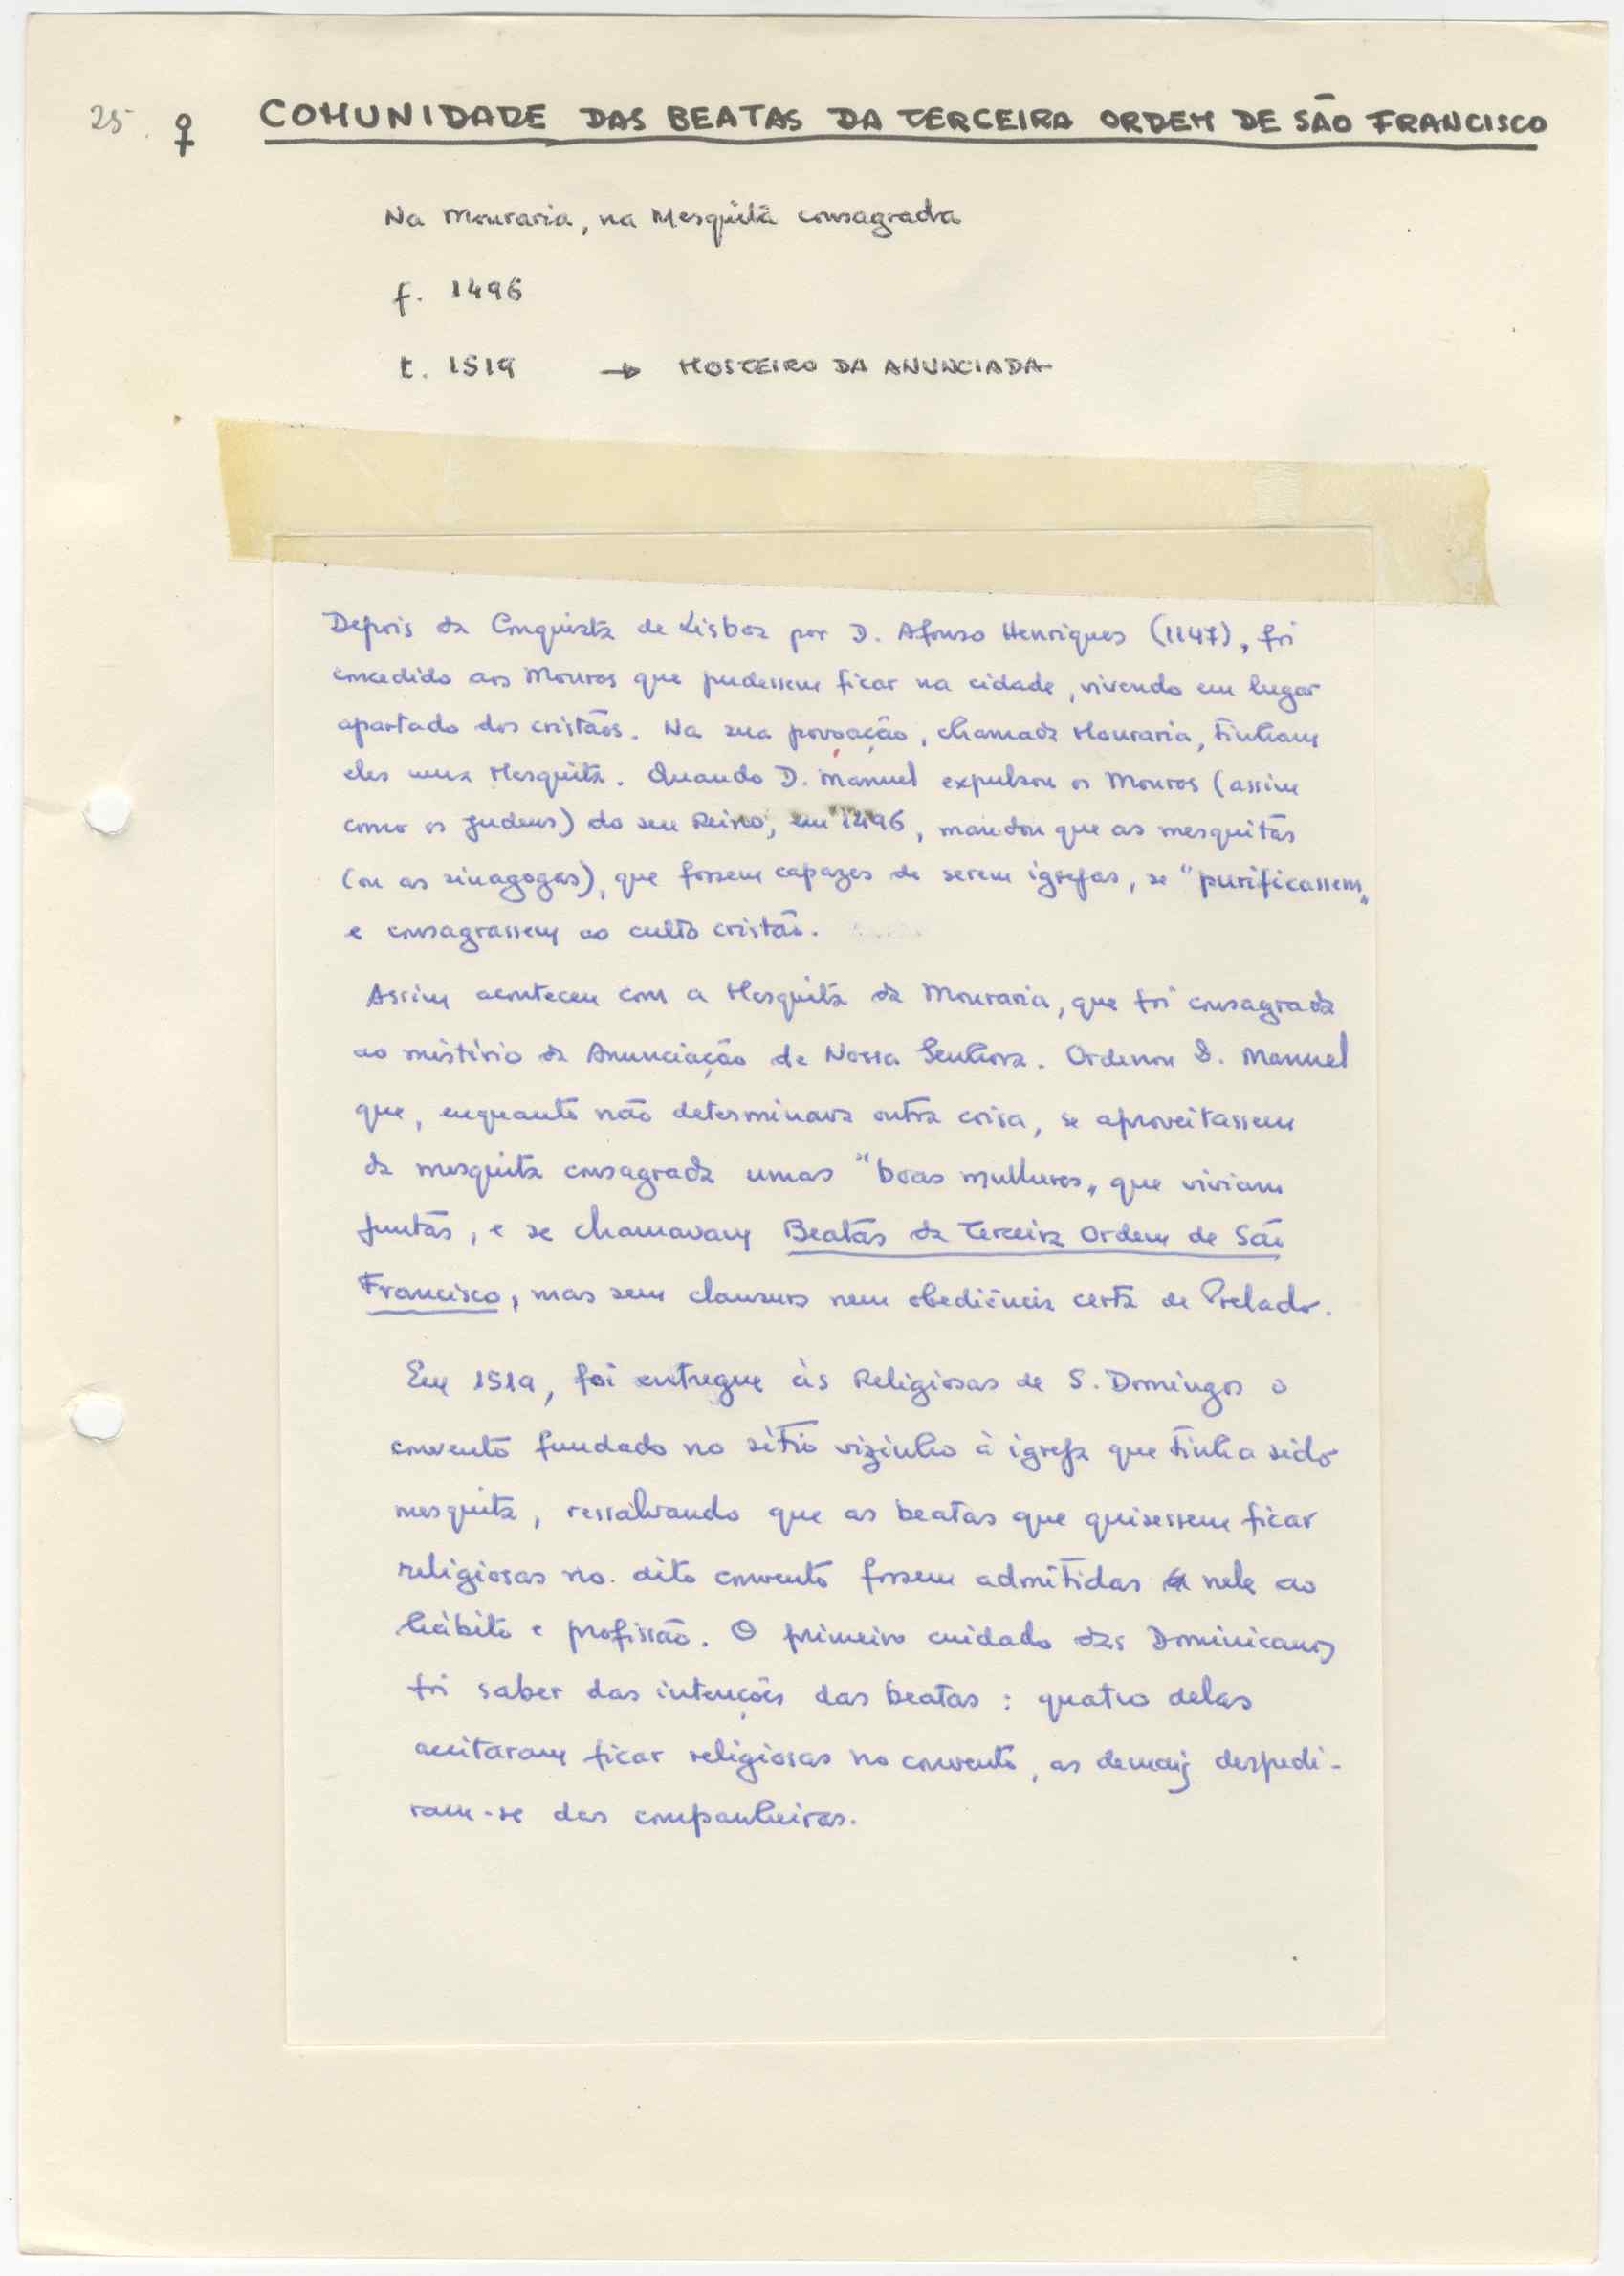 25. ♀ COMUNIDADE DAS BEATAS DA TERCEIRA ORDEM DE SÃO FRANCISCO
Na Mouraria, na Mesquita consagrada
f. 1496
t. 1519 → MOSTEIRO DA ANUNCIADA
Depois da Conquista de Lisboa por D. Afonso Henriques (1147), foi
concedido aos Mouros que pudessem ficar na cidade, vivendo em lugar
apartado dos cristãos. Na sua povoação, chamada Mouraria, tinham
eles uma Mesquita. Quando D. Manuel expulsou os Mouros (assim
como os Judeus) do seu Reino, em 1496, mandou que as mesquitas
(ou as sinagogas), que fossem capazes de serem igrejas, se "purificassem"
e consagrassem ao culto cristão.
Assim aconteceu com a Mesquita da Mouraria, que foi consagrada
ao mistério da Anunciação de Nossa Senhora. Ordenou D. Manuel
que, enquanto não determinava outra coisa, se aproveitassem
da mesquita consagrada umas "boas mulheres" que viviam
juntas, e se chamavam Beatas da Terceira Ordem de São
Francisco, mas sem clausura nem obediência certa de Prelado.
Em 1519, foi entregue às Religiosas de S. Domingos o
convento fundado no sítio vizinho à igreja que tinha sido
mesquita, ressalvando que as beatas que quisessem ficar
religiosas no dito convento fossem admitidas nele ao
hábito e profissão. O primeiro cuidado das Dominicanas
foi saber das intenções das beatas: quatro delas
aceitaram ficar religiosas no convento, as demais despedi-
ram-se das companheiras.